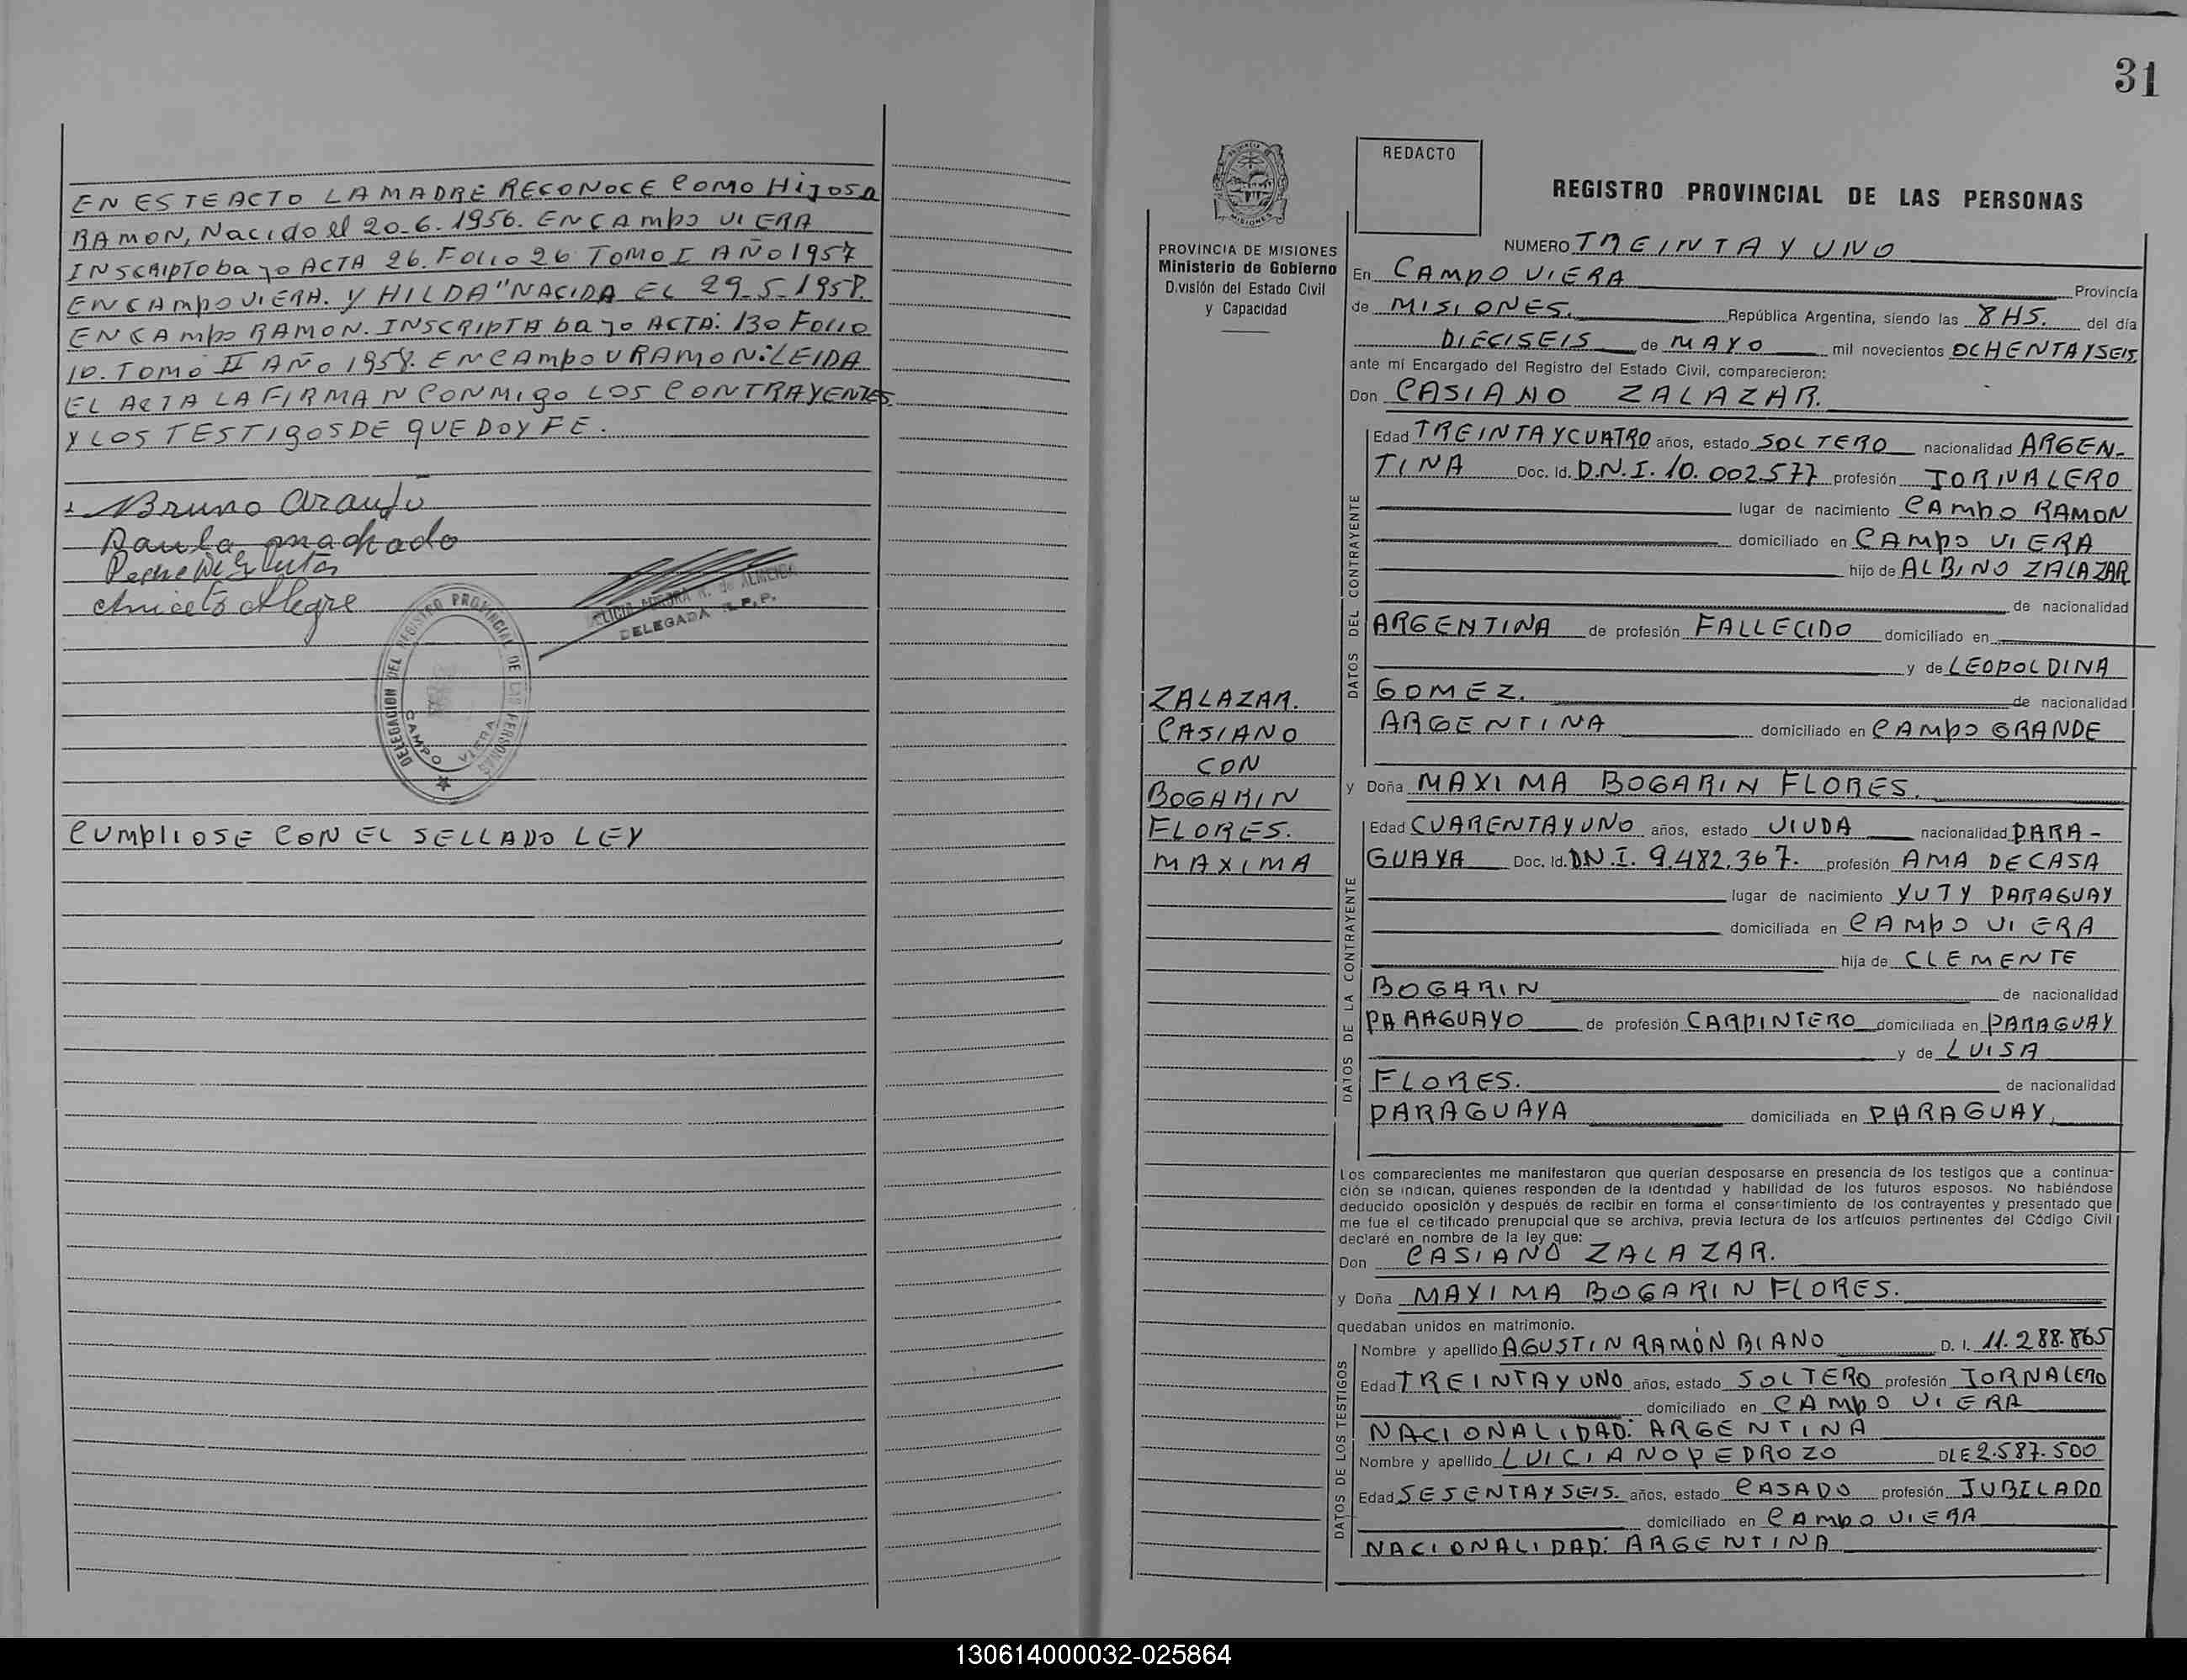 EN ESTE ACTO LA MADRE RECONOCE COMO HIJOS A
RAMON, Nacido el 20-6-1956. EN CAMPO VIERA
INSCRIPTO bajo ACTA 26. FOLIO 26 TOMO I AÑO 1957
EN CAMPO VIERA. Y HILDA" NACIDA EL 29-5-1958.
EN CAMPO RAMON. INSCRIPTA bajo ACTA: 130 FOLIO
10. TOMO II AÑO 1958. EN CAMPO V RAMON: LEIDA
EL ACTA LA FIRMAN CONMIGO LOS CONTRAYENTES.
Y LOS TESTIGOS DE QUE DOY FE.
Bruno Araujo
Paula machado
Aniceto Alegre
ALICIA AURORA R. de ALMEIDA
DELEGADA R.P.P.
DELEGACION DEL REGISTRO PROVINCIAL DE LAS PERSONAS
CAMPO VIERA
CUMPLIOSE CON EL SELLADO LEY
31
REDACTO
REGISTRO PROVINCIAL DE LAS PERSONAS
PROVINCIA DE MISIONES
Ministerio de Gobierno
División del Estado Civil
y Capacidad
NUMERO TREINTA Y UNO
En CAMPO VIERA Provincia
de MISIONES. República Argentina, siendo las 8 HS. del día
DIECISEIS de MAYO mil novecientos OCHENTA Y SEIS
ante mí Encargado del Registro del Estado Civil, comparecieron:
Don CASIANO ZALAZAR.
DATOS DEL CONTRAYENTE
Edad TREINTA Y CUATRO años, estado SOLTERO nacionalidad ARGEN-
TINA Doc. Id. D.N.I. 10.002.577 profesión JORNALERO
lugar de nacimiento CAMPO RAMON
domiciliado en CAMPO VIERA
hijo de ALBINO ZALAZAR
de nacionalidad
ARGENTINA de profesión FALLECIDO domiciliado en
y de LEOPOLDINA
GOMEZ. de nacionalidad
ARGENTINA domiciliado en CAMPO GRANDE
ZALAZAR.
CASIANO
CON
BOGARIN
FLORES.
MAXIMA
y Doña MAXIMA BOGARIN FLORES.
DATOS DE LA CONTRAYENTE
Edad CUARENTA Y UNO años, estado VIUDA nacionalidad PARA-
GUAYA Doc. Id. D.N.I. 9.482.367. profesión AMA DE CASA
lugar de nacimiento YUTY PARAGUAY
domiciliada en CAMPO VIERA
hija de CLEMENTE
BOGARIN de nacionalidad
PARAGUAYO de profesión CARPINTERO domiciliada en PARAGUAY
y de LUISA
FLORES. de nacionalidad
PARAGUAYA domiciliada en PARAGUAY.
Los comparecientes me manifestaron que querían desposarse en presencia de los testigos que a continua-
ción se indican, quienes responden de la identidad y habilidad de los futuros esposos. No habiéndose
deducido oposición y después de recibir en forma el consentimiento de los contrayentes y presentado que
me fue el certificado prenupcial que se archiva, previa lectura de los artículos pertinentes del Código Civil
declaré en nombre de la ley que:
Don CASIANO ZALAZAR.
y Doña MAXIMA BOGARIN FLORES.
quedaban unidos en matrimonio.
DATOS DE LOS TESTIGOS
Nombre y apellido AGUSTIN RAMÓN BIANO D. I. 11.288.865
Edad TREINTA Y UNO años, estado SOLTERO profesión JORNALERO
domiciliado en CAMPO VIERA
NACIONALIDAD: ARGENTINA
Nombre y apellido LUICIANO PEDROZO DLE 2.587.500
Edad SESENTA Y SEIS. años, estado CASADO profesión JUBILADO
domiciliado en CAMPO VIERA
NACIONALIDAD: ARGENTINA
130614000032-025864